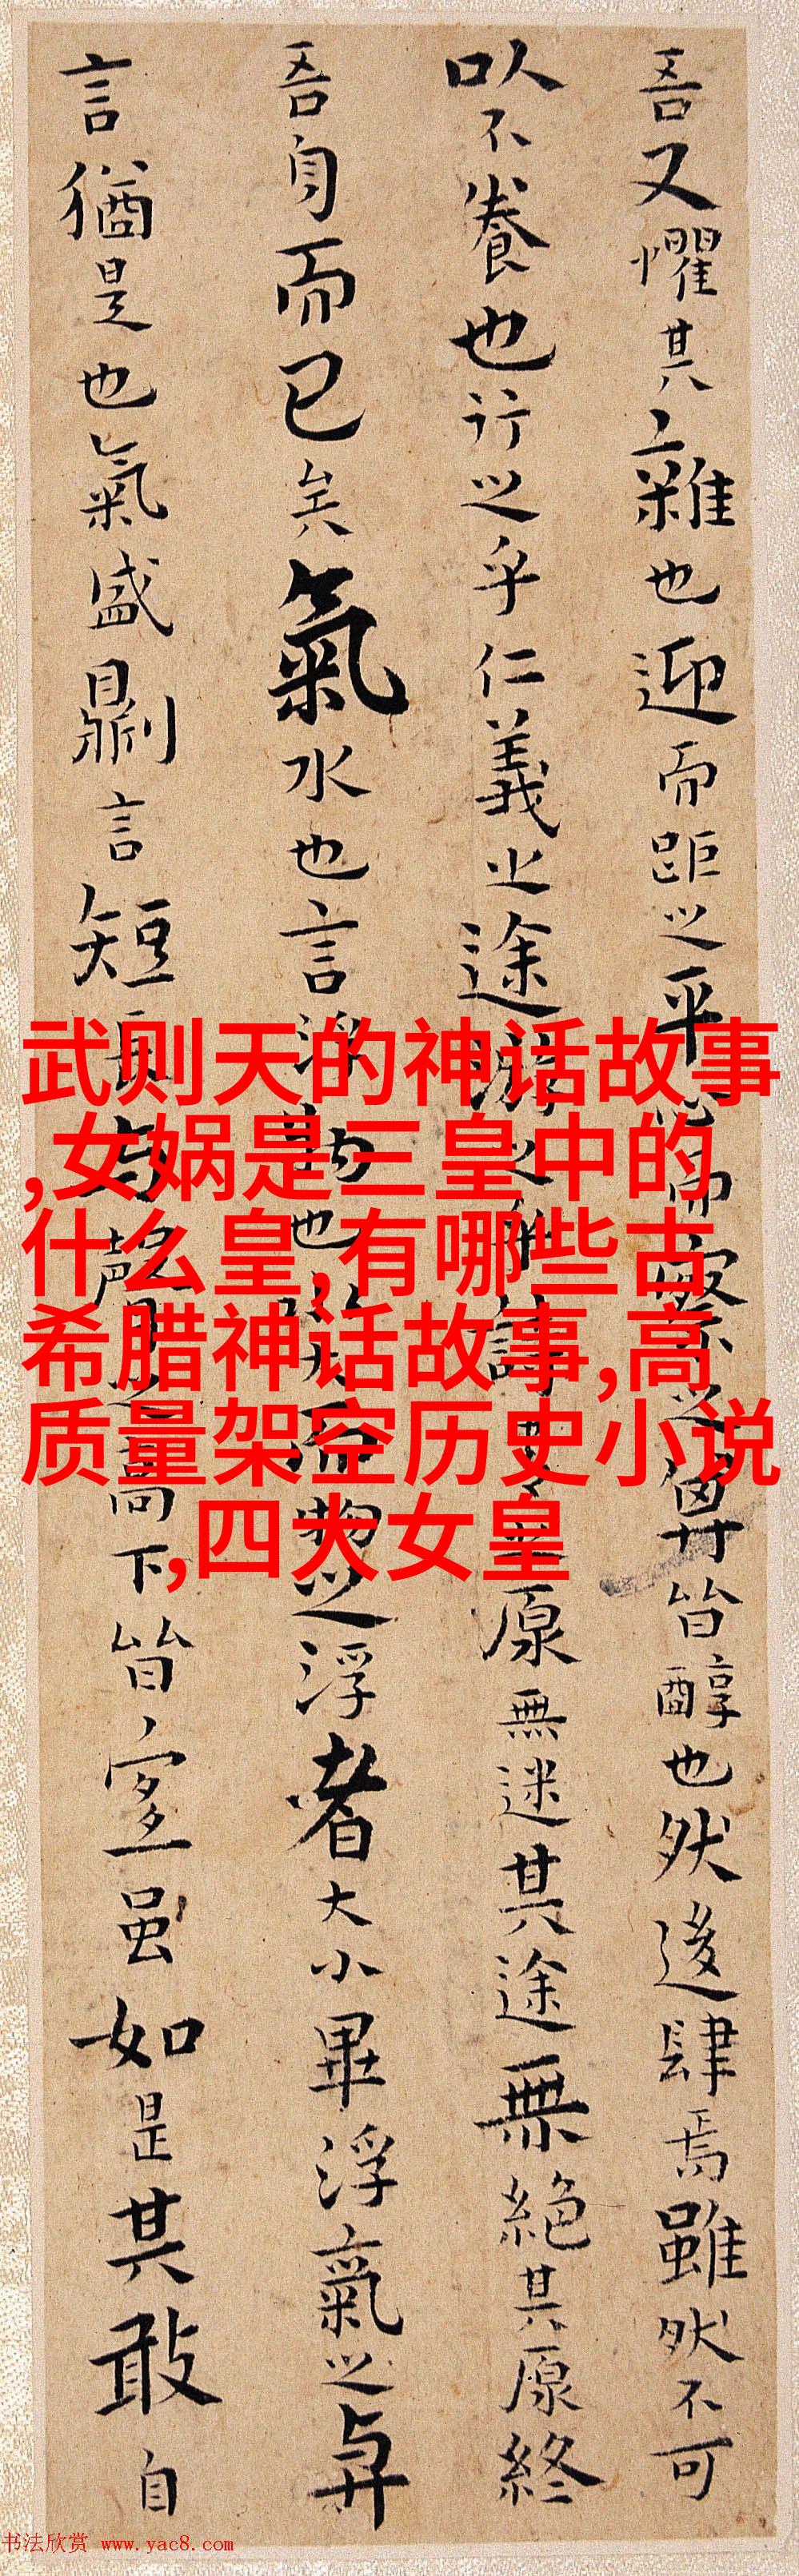 吾又懼其雜也迎而距之平而察之其皆醇也然後肆焉雖然不可
以不養也行之乎仁義之途游之詩原無迷其途無絕其原終
吾身而已矣氣水也言浮物也大而物之浮者大小畢浮氣之與
言猶是也氣盛則言短長与聲高下皆宜虽如是其敢自
武则天的神话故事
,女娲是三皇中的
什么皇,有哪些古
希腊神话故事,高
质量架空历史小说
,四大女皇
书法欣赏 www.yac8.com